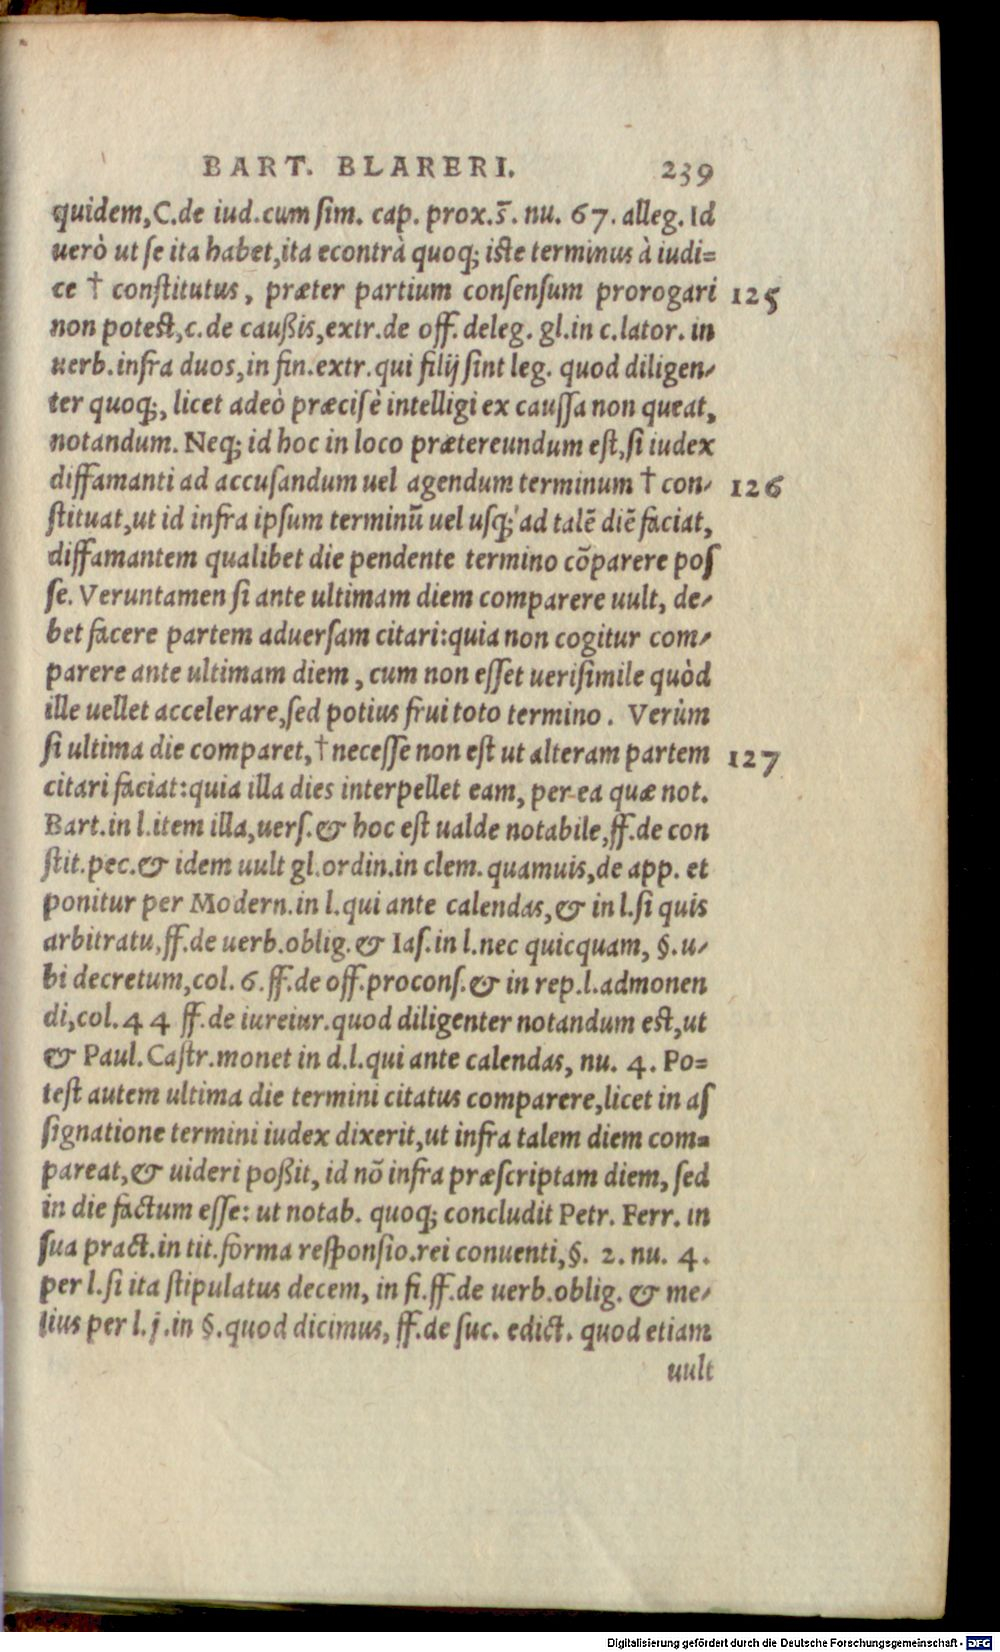 BART. BLARERI. 239
quidem, C.de iud.cum sim. cap. prox.s̄. nu. 67. alleg. Id
uerò ut se ita habet, ita econtrà quoq; iste terminus à iudi=
ce † constitutus, præter partium consensum prorogari 125
non potest, c. de caußis, extr. de off. deleg. gl. in c. lator. in
uerb. infra duos, in fin. extr. qui filij sint leg. quod diligen-
ter quoq;, licet adeò præcisè intelligi ex caussa non queat,
notandum. Neq; id hoc in loco prætereundum est, si iudex
diffamanti ad accusandum uel agendum terminum † con- 126
stituat, ut id infra ipsum terminũ uel usq; ad talẽ diẽ faciat,
diffamantem qualibet die pendente termino cõparere pos
se. Veruntamen si ante ultimam diem comparere uult, de-
bet facere partem aduersam citari: quia non cogitur com-
parere ante ultimam diem, cum non esset uerisimile quòd
ille uellet accelerare, sed potius frui toto termino. Verùm
si ultima die comparet, † necesse non est ut alteram partem 127
citari faciat: quia illa dies interpellet eam, per ea quæ not.
Bart. in l. item illa, uers. & hoc est ualde notabile, ff. de con
stit. pec. & idem uult gl. ordin. in clem. quamuis, de app. et
ponitur per Modern. in l. qui ante calendas, & in l. si quis
arbitratu, ff. de uerb. oblig. & Ias. in l. nec quicquam, §. u-
bi decretum, col. 6. ff. de off. procons. & in rep. l. admonen
di, col. 44 ff. de iureiur. quod diligenter notandum est, ut
& Paul. Castr. monet in d. l. qui ante calendas, nu. 4. Po=
test autem ultima die termini citatus comparere, licet in as
signatione termini iudex dixerit, ut infra talem diem com=
pareat, & uideri poßit, id nõ infra præscriptam diem, sed
in die factum esse: ut notab. quoq; concludit Petr. Ferr. in
sua pract. in tit. forma responsio. rei conuenti, §. 2. nu. 4.
per l. si ita stipulatus decem, in fi. ff. de uerb. oblig. & me-
lius per l. j. in §. quod dicimus, ff. de suc. edict. quod etiam
uult
Digitalisierung gefördert durch die Deutsche Forschungsgemeinschaft - DFG